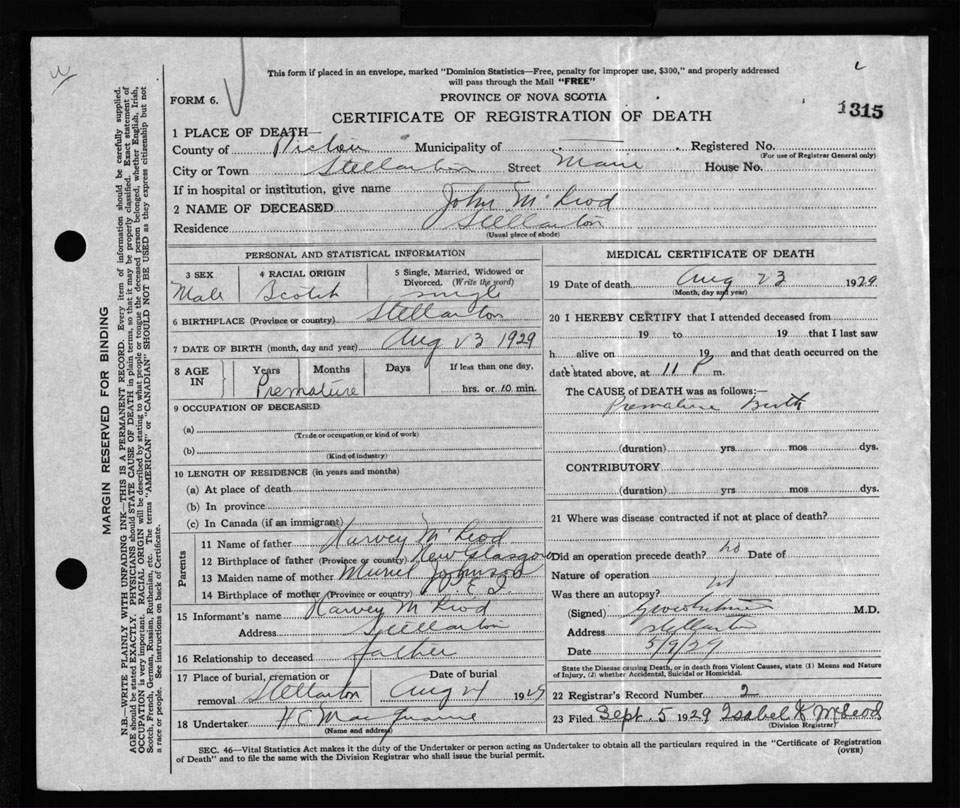 This form if placed in an envelope, marked "Dominion Statistics—Free, penalty for improper use, $300," and properly addressed
will pass through the Mail "FREE"
FORM 6.
PROVINCE OF NOVA SCOTIA
CERTIFICATE OF REGISTRATION OF DEATH
1315
1 PLACE OF DEATH—
County of Pictou Municipality of Registered No.
(For use of Registrar General only)
City or Town Stellarton Street Main House No.
If in hospital or institution, give name
2 NAME OF DECEASED John McLeod
Residence Stellarton
(Usual place of abode)
PERSONAL AND STATISTICAL INFORMATION
3 SEX 4 RACIAL ORIGIN 5 Single, Married, Widowed or
Divorced. (Write the word)
Male Scotch single
6 BIRTHPLACE (Province or country) Stellarton
7 DATE OF BIRTH (month, day and year) Aug 23 1929
8 AGE IN Years Months Days If less than one day,
Premature hrs. or 10 min.
9 OCCUPATION OF DECEASED
(a)
(Trade or occupation or kind of work)
(b)
(Kind of industry)
10 LENGTH OF RESIDENCE (in years and months)
(a) At place of death
(b) In province
(c) In Canada (if an immigrant)
Parents
11 Name of father Harvey McLeod
12 Birthplace of father (Province or country) New Glasgow
13 Maiden name of mother Muriel Johnson
14 Birthplace of mother (Province or country) P.E.I.
15 Informant's name Harvey McLeod
Address Stellarton
16 Relationship to deceased father
17 Place of burial, cremation or Date of burial
removal Stellarton Aug 24 1929
18 Undertaker H C
(Name and address)
MEDICAL CERTIFICATE OF DEATH
19 Date of death Aug 23 1929
(Month, day and year)
20 I HEREBY CERTIFY that I attended deceased from
19 to 19 that I last saw
h alive on 19 and that death occurred on the
date stated above, at 11 P m.
The CAUSE OF DEATH was as follows:—
Premature Birth
(duration) yrs mos dys.
CONTRIBUTORY
(duration) yrs mos dys.
21 Where was disease contracted if not at place of death?
Did an operation precede death? no Date of
Nature of operation
Was there an autopsy? no
(Signed) M.D.
Address Stellarton
Date 5/9/29
State the Disease causing Death, or in death from Violent Causes, state (1) Means and Nature
of Injury, (2) whether Accidental, Suicidal or Homicidal.
22 Registrar's Record Number 2
23 Filed Sept. 5 1929 Isabel McLeod
(Division Registrar)
SEC. 46—Vital Statistics Act makes it the duty of the Undertaker or person acting as Undertaker to obtain all the particulars required in the "Certificate of Registration
of Death" and to file the same with the Division Registrar who shall issue the burial permit.
(OVER)
MARGIN RESERVED FOR BINDING
N.B.—WRITE PLAINLY, WITH UNFADING INK—THIS IS A PERMANENT RECORD. Every item of information should be carefully supplied.
AGE should be stated EXACTLY. PHYSICIANS should STATE CAUSE OF DEATH in plain terms, so that it may be properly classified. Exact statement of
OCCUPATION is very important. RACIAL ORIGIN will be described by stating to what people or tongue the deceased person belonged, whether English, Irish,
Scotch, French, German, Russian, Ruthenian, etc. The terms "AMERICAN" or "CANADIAN" SHOULD NOT BE USED as they express citizenship but not
a race or people. See instructions on back of Certificate.